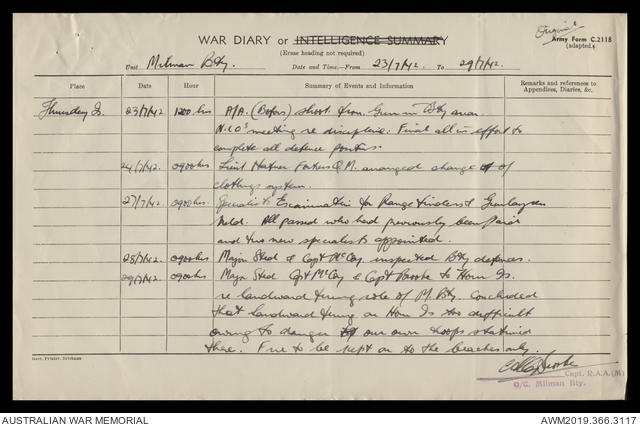 Original
WAR DIARY or INTELLIGENCE SUMMARY
Army Form C.2118
(Erase heading not required)
(adapted.)
Unit Milman Bty. Date and Time.—From 23/7/42. To 29/7/42.
Place Date Hour Summary of Events and Information Remarks and references to Appendices, Diaries, &c.
Thursday Is. 23/7/42. 1200 hrs A/A. (Bofors) shoot from Gun in Bty area.
N.C.O's meeting re discipline. Final all in effort to
complete all defence
24/7/42. 0900 hrs Lieut arranged change of
clothing system.
27/7/42. 0900 hrs. Specialists Examination for Range Finders & Gunlayers
held. All passed who had previously been
and two new specialists appointed.
28/7/42. 0900 hrs Major & Capt McCay inspected Bty defences.
29/7/42. 0900 hrs Major Capt McCay & Capt to Horn Is.
re landward firing role of M. Bty. Concluded
that landward firing on Horn Is too difficult
owing to danger to our own troops stationed
there. Fire to be kept on to the beaches only.
Govt. Printer, Brisbane
Capt. R.A.A.(M)
O/C. Milman Bty.
AUSTRALIAN WAR MEMORIAL AWM2019.366.3117